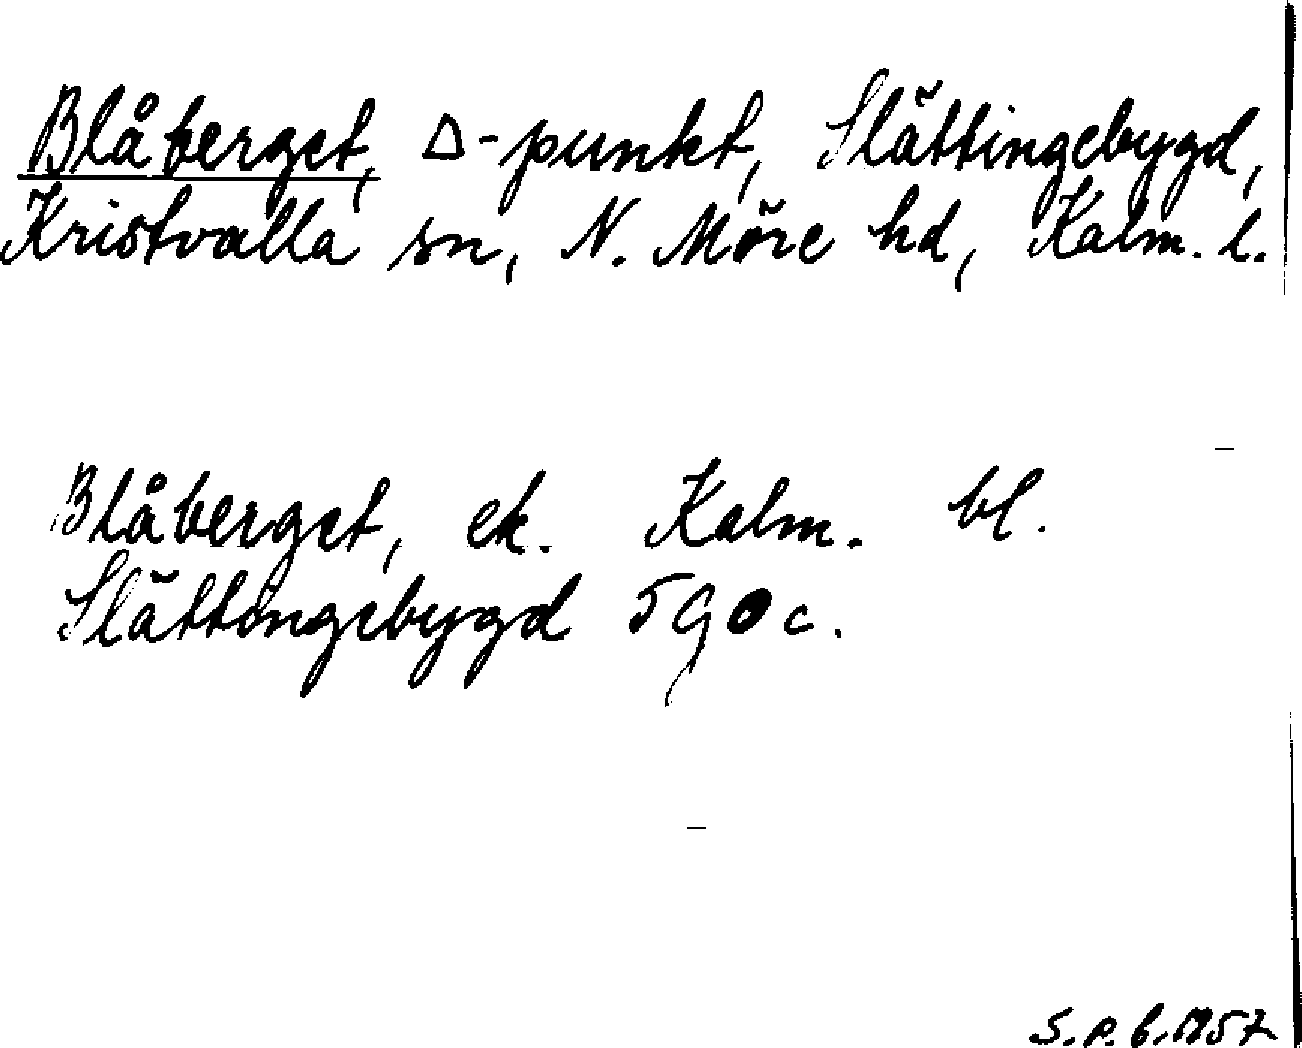 Blåberget, Δ-punkt, Slättingebygd,
Kristvalla sn, N. Möre hd, Kalm. l.
Blåberget, ek. Kalm. bl.
Slättingebygd 5 g o c.
S.P.B. 1957